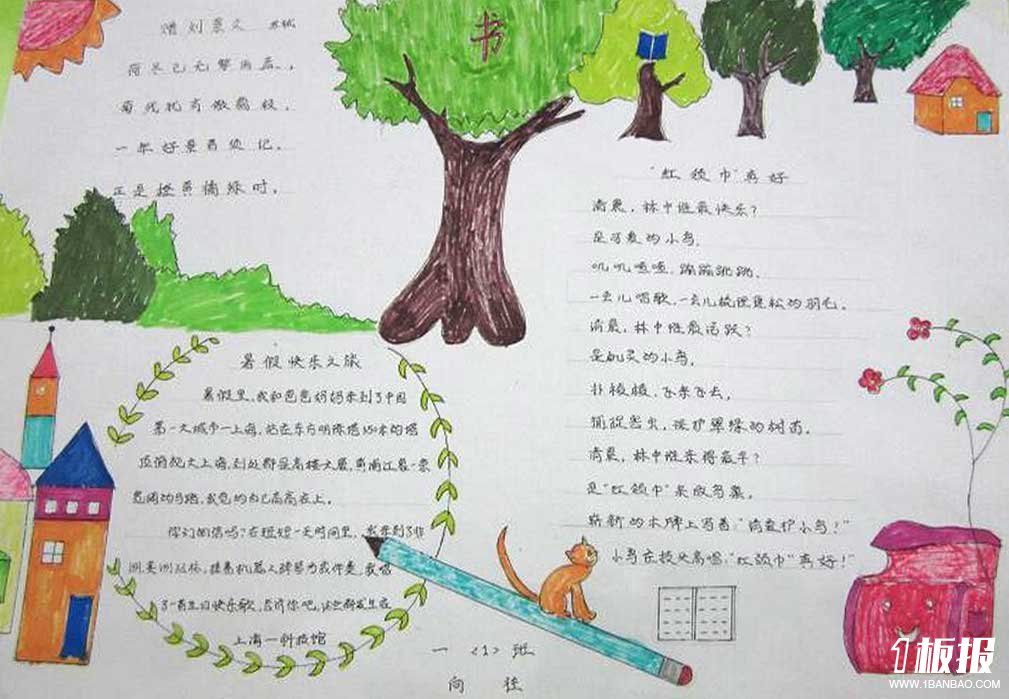 赠刘景文 苏轼
荷尽已无擎雨盖,
菊残犹有傲霜枝.
一年好景君须记.
正是橙黄橘绿时.
书
"红领巾"真好
清晨,林中谁最快乐?
是可爱的小鸟.
叽叽喳喳,蹦蹦跳跳.
一会儿唱歌,一会儿梳理蓬松的羽毛.
清晨,林中谁最活跃?
是机灵的小鸟.
扑棱棱,飞来飞去,
捕捉害虫,保护翠绿的树苗.
清晨,林中谁来得最早?
是"红领巾"来放鸟巢.
崭新的木牌上写着:"请爱护小鸟!"
小鸟在枝头高唱:"红领巾"真好!"
暑假快乐之旅
暑假里,我和爸爸妈妈来到了中国
第一大城市—上海,站在东方明珠塔350米的塔
顶俯视大上海,到处都是高楼大厦,黄浦江像一条
宽阔的马路,我觉的自己高高在上.
你们相信吗?在短短一天时间里,我来到了非
洲,美洲丛林,接着机器人弹琴为我伴奏,我唱
了一首生日快乐歌,告诉你吧,这些都发生在
上海—科技馆
一〈1〉班
向往
1板报
WWW.1BANBAO.COM